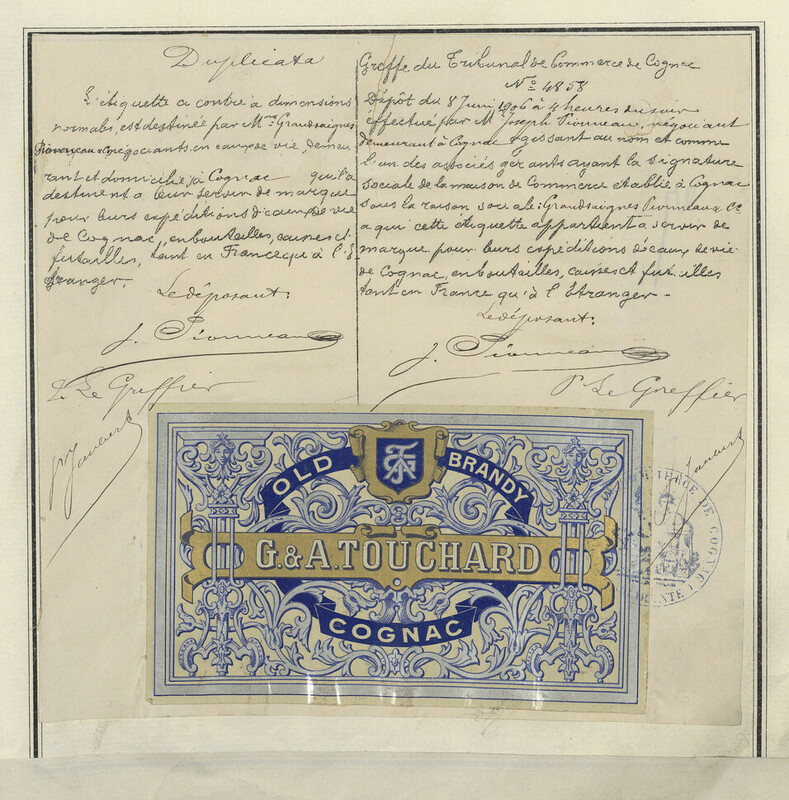 Duplicata
L'étiquette ci contre à dimensions
normales, est destinée par Mrs Grandsaignes
Pionneau & Co négociants en eaux de vie, demeu
rant et domiciliés à Cognac qui la
destinent à leur servir de marque
pour leurs expéditions d'eaux de vie
de Cognac, en bouteilles, caisses et
futailles, tant en France qu'à l'E-
tranger.
Le déposant:
J. Pionneau
P. Le Greffier
Greffe du Tribunal de Commerce de Cognac
No 4858
Dépôt du 8 Juin 1906 à 4 heures du soir
effectué par M. Joseph Pionneau, négociant
demeurant à Cognac agissant au nom et comme
l'un des associés gérants ayant la signature
sociale de la maison de Commerce établie à Cognac
sous la raison sociale: Grandsaignes Pionneau & Co
à qui cette étiquette appartient à servir de
marque pour leurs expéditions d'eaux de vie
de Cognac, en bouteilles, caisses et futailles
tant en France qu'à l'Etranger -
Le déposant:
J. Pionneau
P. Le Greffier
OLD BRANDY
G. & A. TOUCHARD
COGNAC
DE COGNAC